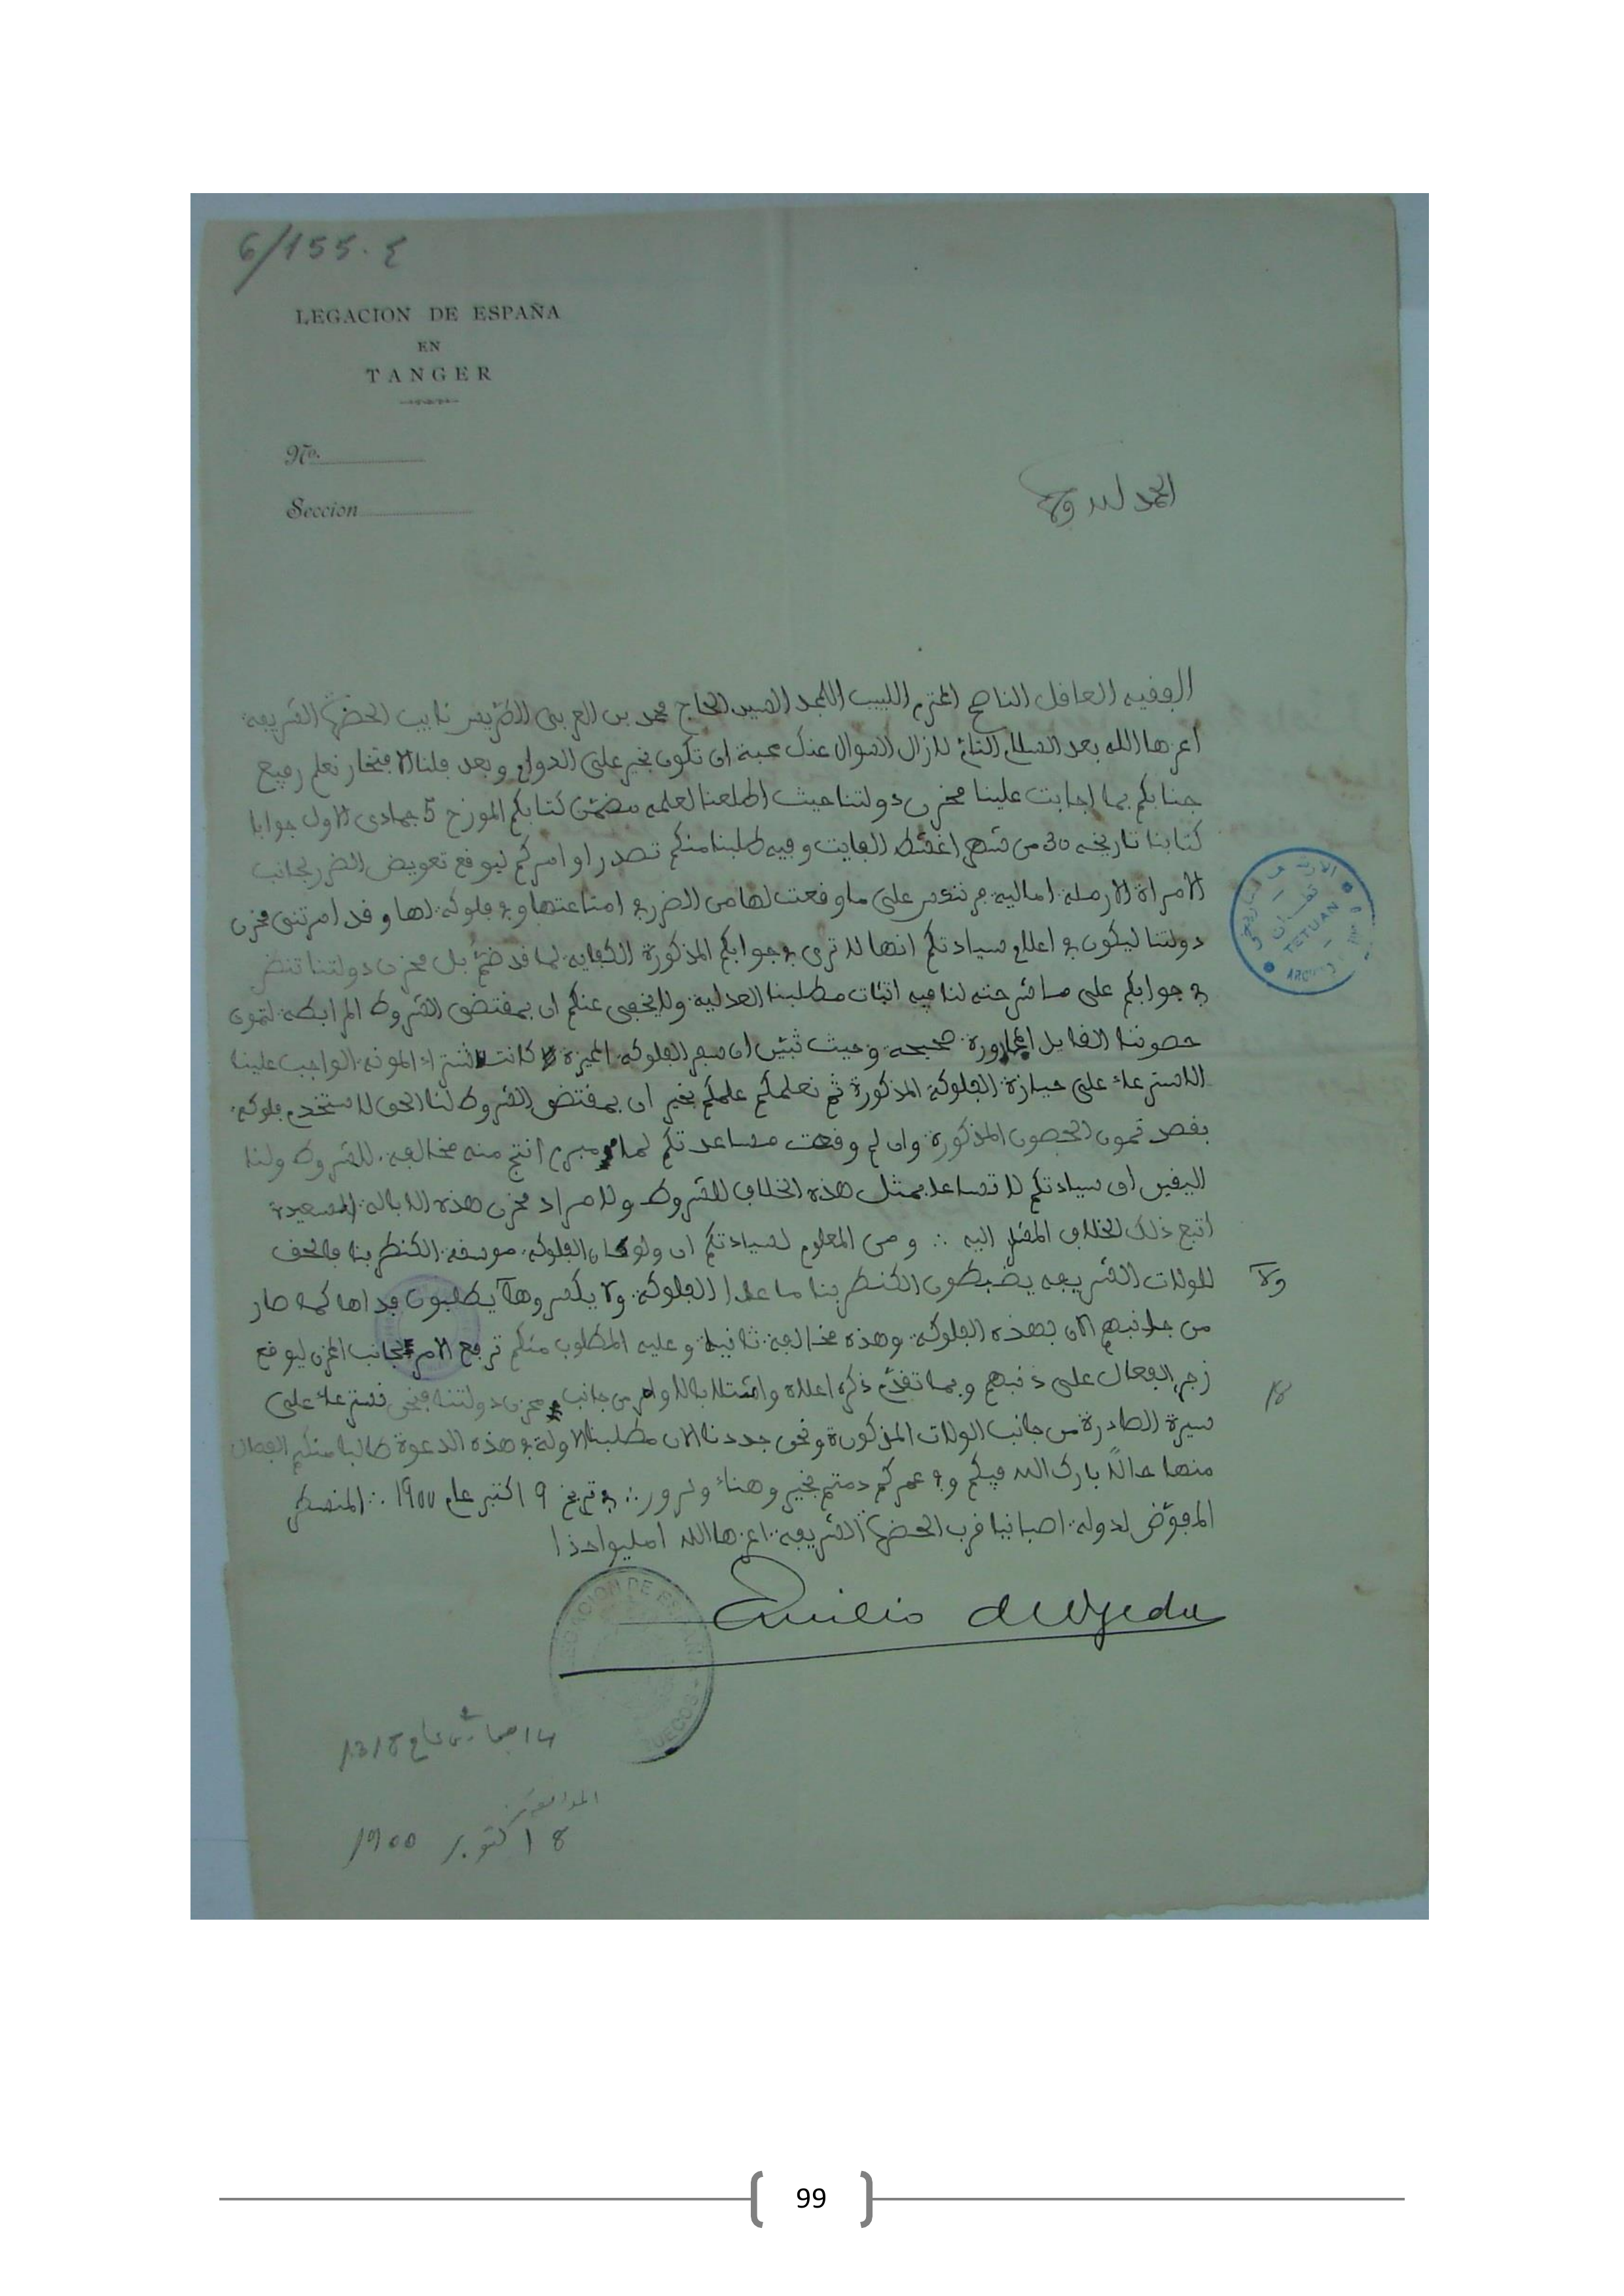 6/155.ع
LEGACION DE ESPAÑA
EN
TANGER
No.
Seccion
الحمد لله وحده
الفقيه العاقل الناصح المحترم اللبيب الامجد السيد الحاج محمد بن العربي الطريس نايب الحضرة الشريفة
اعزها الله بعد السلام التام لازال السوال عنك محبة ان تكون بخير على الدوام وبعد فلنا الافتخار نعلم رفيع
جنابكم بما اجابت علينا مخزن دولتنا حيث اطلعنا لعلمه مضمن كتابكم المورخ 5 جمادى الاول جوابا
كتابنا تاريخه 30 من شهر اغشط الفايت وفيه طلبنا منكم تصدر اوامركم ليوقع تعويض الضرر لجانب
الامراة الارملة اماليه على ما وقعت لها من الضرر في امتاعتها و في فلوكة لها وقد امرتني مخزن
دولتنا ليكون في اعلام سيادتكم انها لا ترى في جوابكم المذكورة الكفايه لما قد بل مخزن دولتنا تنضر
في جوابكم على ما شرحته لنا فيه اثبات مطلبنا العدلية ولا يخفى عنكم ان بمقتضى الشروط المرابطة لتمون
حصوننا القبايل المجاورة صحيحه وحيث ثبتن ان سفر الفلوكة كانت لشراء المونة الواجب علينا
الاسترعاء على حيازة الفلوكة المذكورة ثم نعلمكم علمكم بخير ان بمقتضى الشروط لنا الحق لاستخدم فلوكة
بقصد تمون الحصون المذكورة وان لم وقعت مساعدتكم لما انتج منه مخالفة للشروط ولنا
اليقين ان سيادتكم لا تساعد بمثل هذه الخلاف للشروط ولا مراد مخزن هذه الايالة السعيدة
اتبع ذلك الخلاف المشار اليه ∴ ومن المعلوم لسيادتكم ان ولو كان الفلوكة موسقة الكنطربنا فالحق
للولات الشريفه يضبطون الكنطربنا ما عدا الفلوكة ولا يكسروها يطلبون فداها كما صار
ولا
من جانبهم الان بهذه الفلوكة وهذه مخالفة ثانية وعليه المطلوب منكم ترفع الامر لجانب المخزن ليوقع
زجر الفعال على ذنبهم وبما تقدم ذكره اعلاه وامتثلا بالاوامر من جانب مخزن دولتنا فنحن نسترعاء على
سيرة الصادرة من جانب الولات المذكورة ونحن جددنا الان مطلبنا الاولة في هذه الدعوة طالبا منكم الفصال
منها حالا بارك الله فيكم و في عمركم دمتم بخير وهناء وسرور ∴ في تريخ 9 اكتبر عام 1900 ∴ المنصطر
المفوض لدولة اصبانيا قرب الحضرة الشريفة اعزها الله امليو اخذا
Emilio de Ojeda
14 جمادى 2 عام 1318
الموافق
8 اكتوبر 1900
TETUAN
LEGACION DE ESPAÑA
99